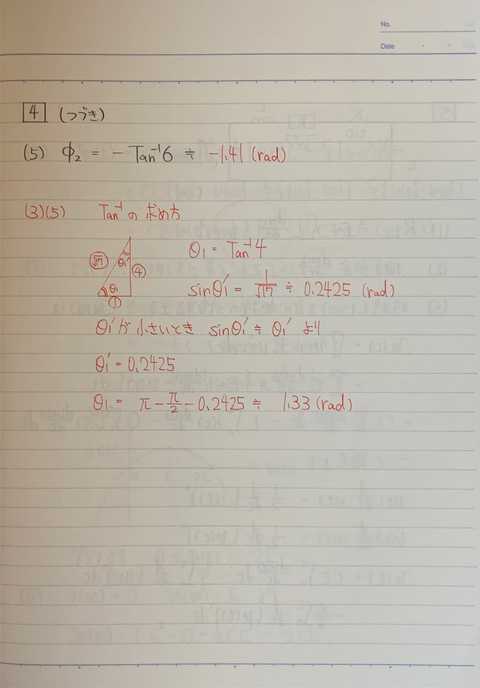 No.
Date
4 (つづき)
(5) Φ₂ = − Tan⁻¹6 ≒ −1.41 (rad)
(3)(5) Tan⁻¹ の 求め方
θ₁ = Tan⁻¹4
√17 θ₁' ④
sinθ₁' = 1/√17 ≒ 0.2425 (rad)
θ₁ ①
θ₁' が 小さいとき sinθ₁' ≒ θ₁' より
θ₁' = 0.2425
θ₁ = π − π/2 − 0.2425 ≒ 1.33 (rad)